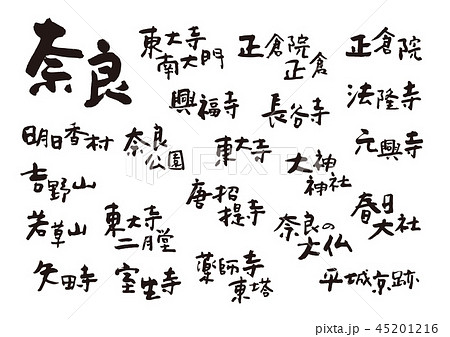 奈良
東大寺
南大門
正倉院
正倉
正倉院
興福寺
長谷寺
法隆寺
明日香村
奈良
公園
東大寺
大神
神社
元興寺
吉野山
唐招
提寺
春日
大社
若草山
東大寺
二月堂
奈良の
大仏
矢田寺
室生寺
薬師寺
東塔
平城京跡
pixta.jp - 45201216